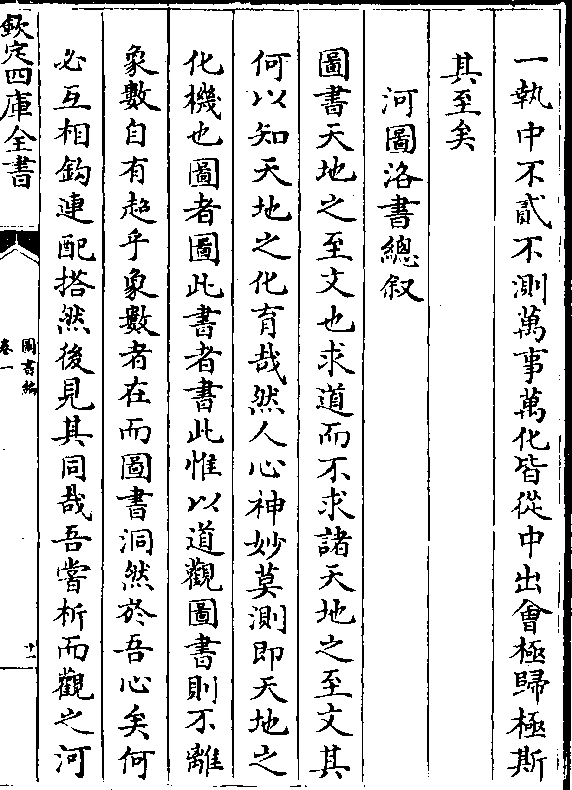 一執中不貳不測萬事萬化皆從中出會極歸極斯
其至矣
河圖洛書總叙
圖書天地之至文也求道而不求諸天地之至文其
何以知天地之化育哉然人心神妙莫測即天地之
化機也圖者圖此書者書此惟以道觀圖書則不離
象數自有超乎象數者在而圖書洞然於吾心矣何
必互相鈎連配搭然後見其同哉吾嘗析而觀之河
欽定四庫全書
圖書編
卷一
十一